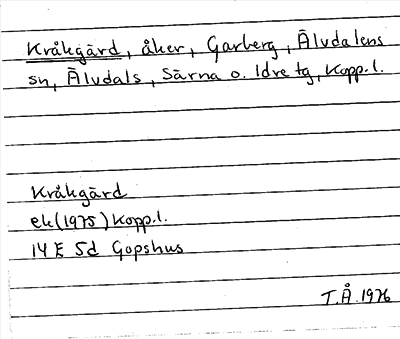 Kråkgärd, åker, Garberg, Älvdalens
sn, Älvdals, Särna o. Idre tg, Kopp.l.
Kråkgärd
ek(1975) Kopp.l.
14E 5d Gopshus
T.Å. 1976